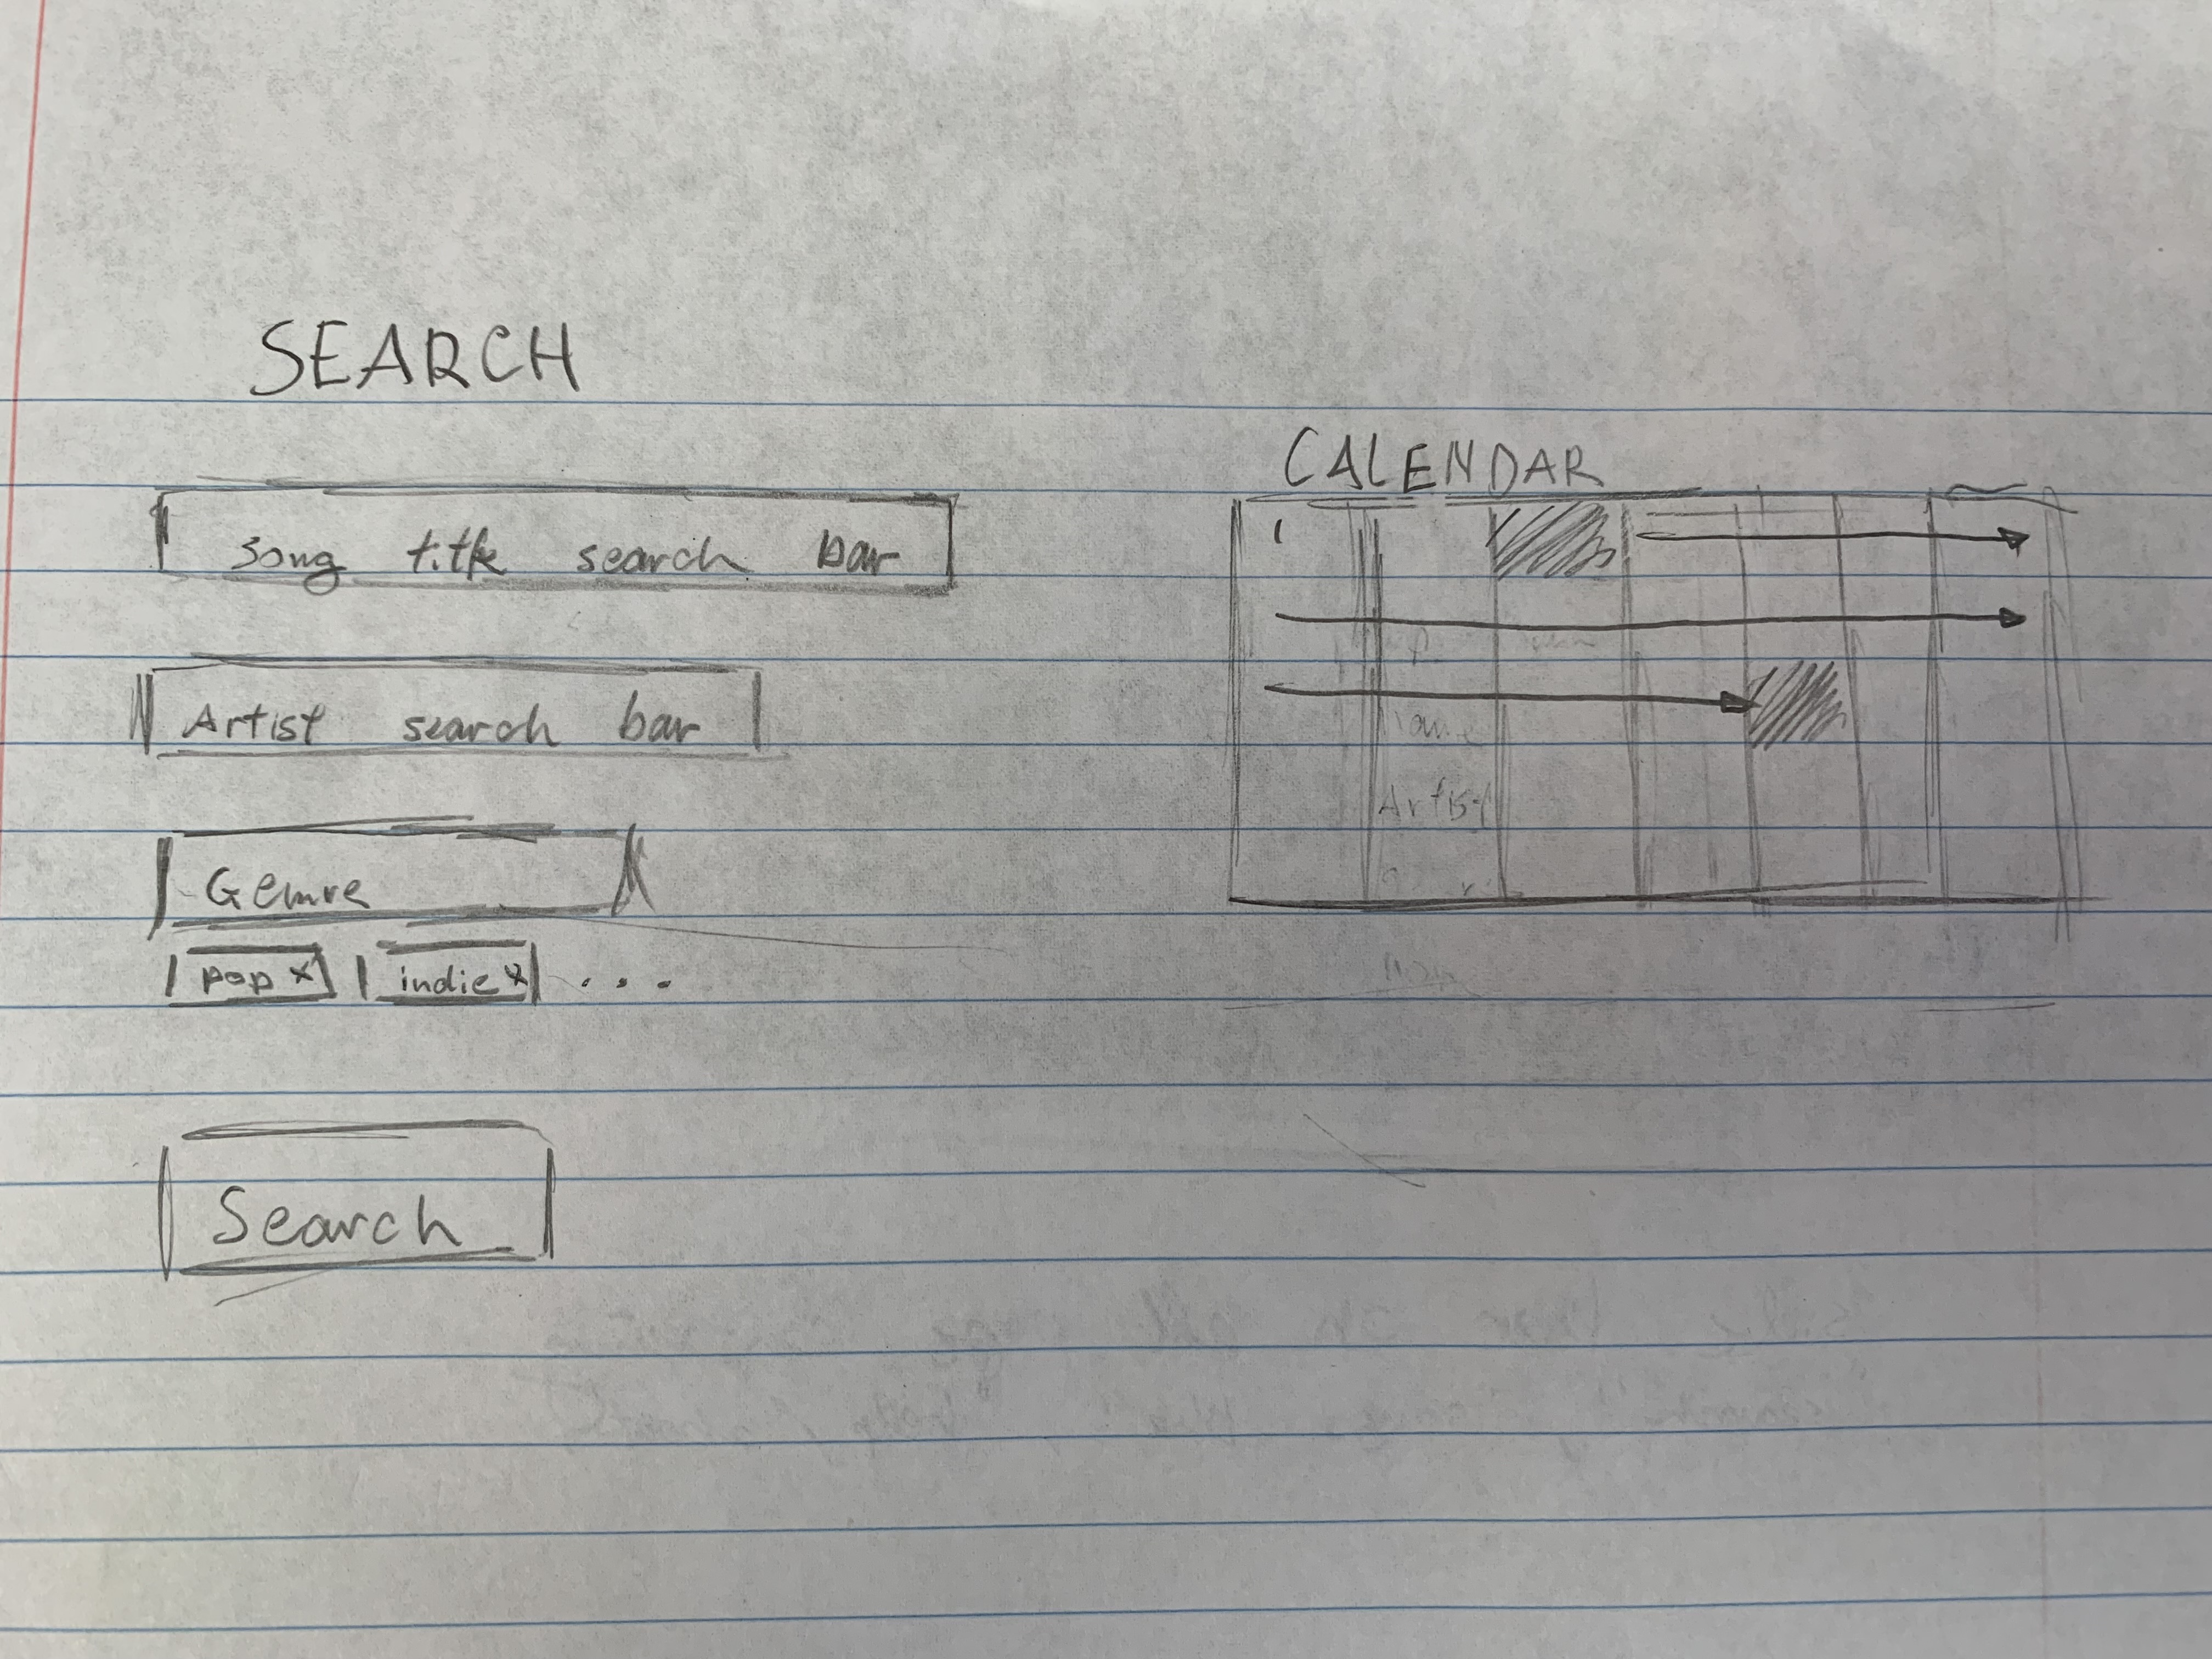 SEARCH
song title search bar
Artist search bar
Genre
pop x indie x ...
Search
CALENDAR
1
Artist